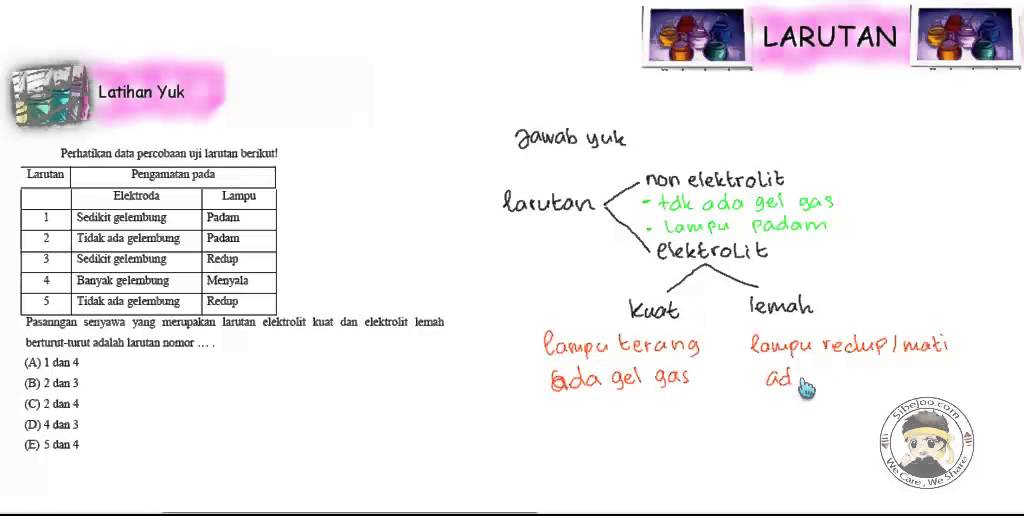 LARUTAN
Latihan Yuk
Perhatikan data percobaan uji larutan berikut!
Larutan Pengamatan pada
Elektroda Lampu
1 Sedikit gelembung Padam
2 Tidak ada gelembung Padam
3 Sedikit gelembung Redup
4 Banyak gelembung Menyala
5 Tidak ada gelembung Redup
Pasanngan senyawa yang merupakan larutan elektrolit kuat dan elektrolit lemah
berturut-turut adalah larutan nomor ... .
(A) 1 dan 4
(B) 2 dan 3
(C) 2 dan 4
(D) 4 dan 3
(E) 5 dan 4
Jawab yuk
larutan
non elektrolit
- tdk ada gel gas
- Lampu padam
elektrolit
kuat
lemah
lampu terang
ada gel gas
lampu redup/mati
ad
Sibejoo.com
We Care, We Share